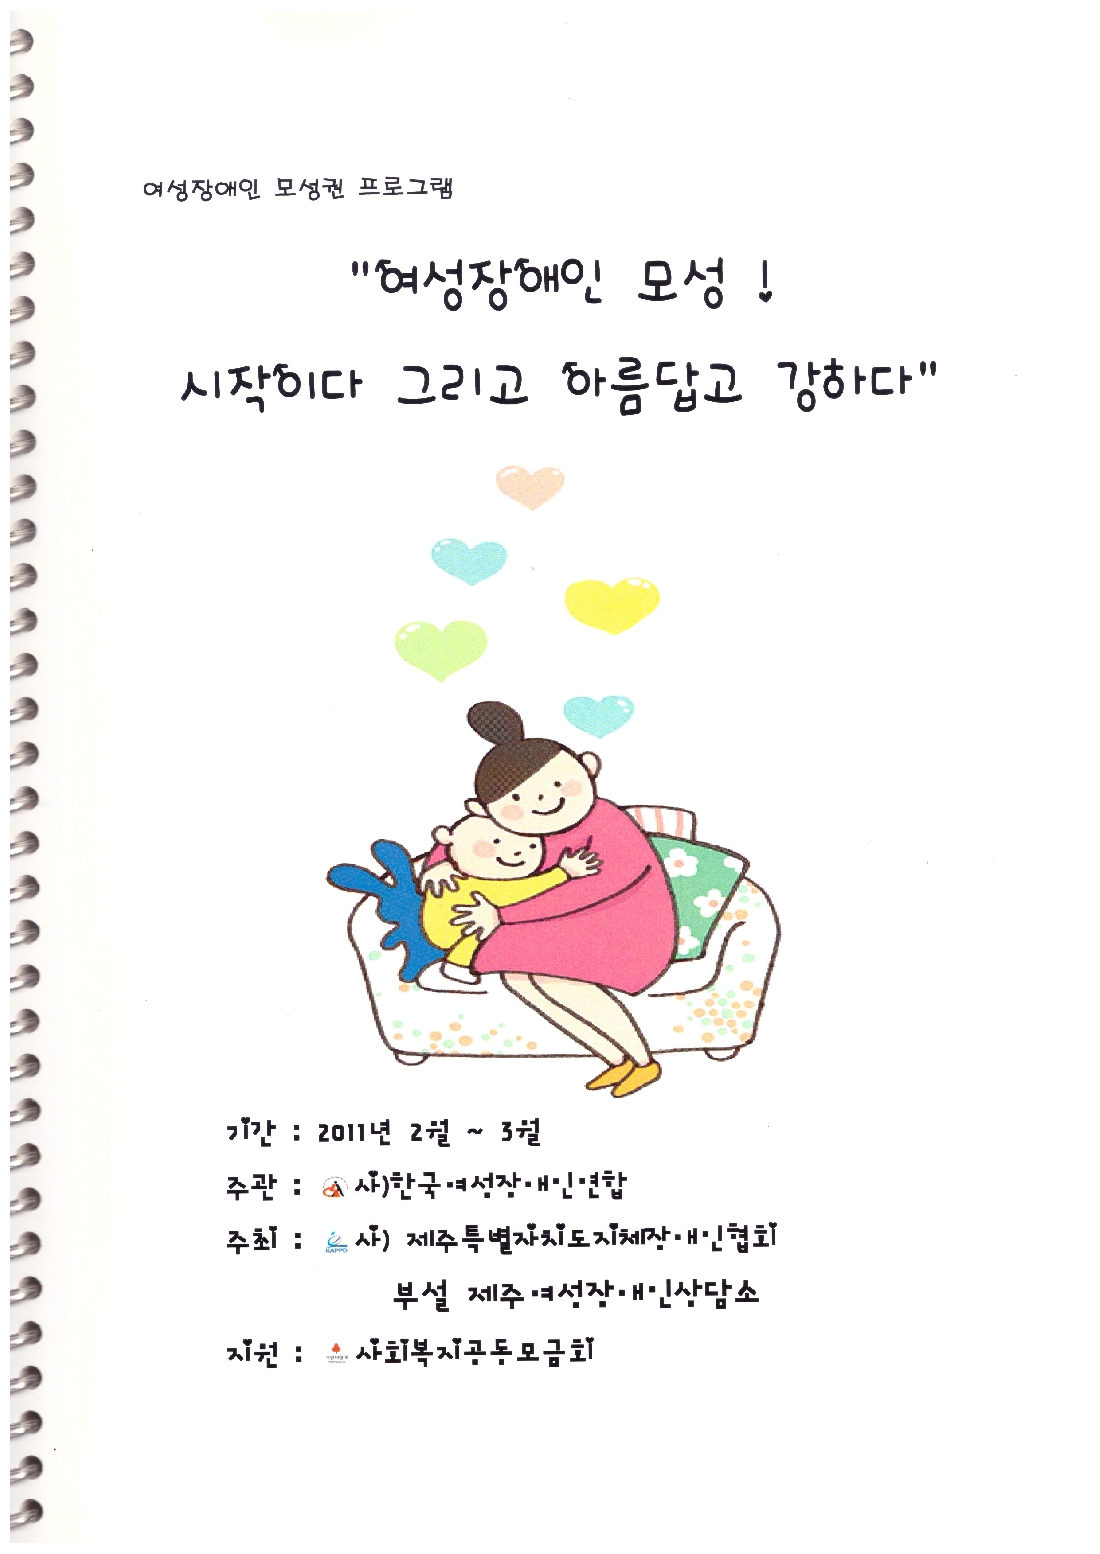 여성장애인 모성권 프로그램
"여성장애인 모성 !
시작이다 그리고 아름답고 강하다"
기간 : 2011년 2월 ~ 3월
주관 : 사)한국여성장애인연합
주최 : KAPPD 사) 제주특별자치도지체장애인협회
부설 제주여성장애인상담소
지원 : 사회복지공동모금회